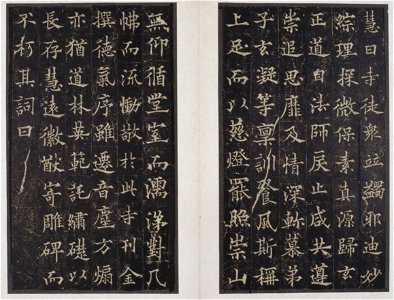 慧日寺徒眾並蠲邪迪妙
綜理探微保素真源歸玄
正道自法師戾止咸共遵
崇追思靡及情深軫慕弟
子玄凝等稟訓餐風斯稱
上足而以慈燈罷照崇山
無仰循堂室而濡涕對几
拂而流慟敬於此寺刊金
撰德氣序雖遷音塵方煽
亦猶道林英範託繡礎以
長存慧遠徽猷寄雕碑而
不朽其詞曰